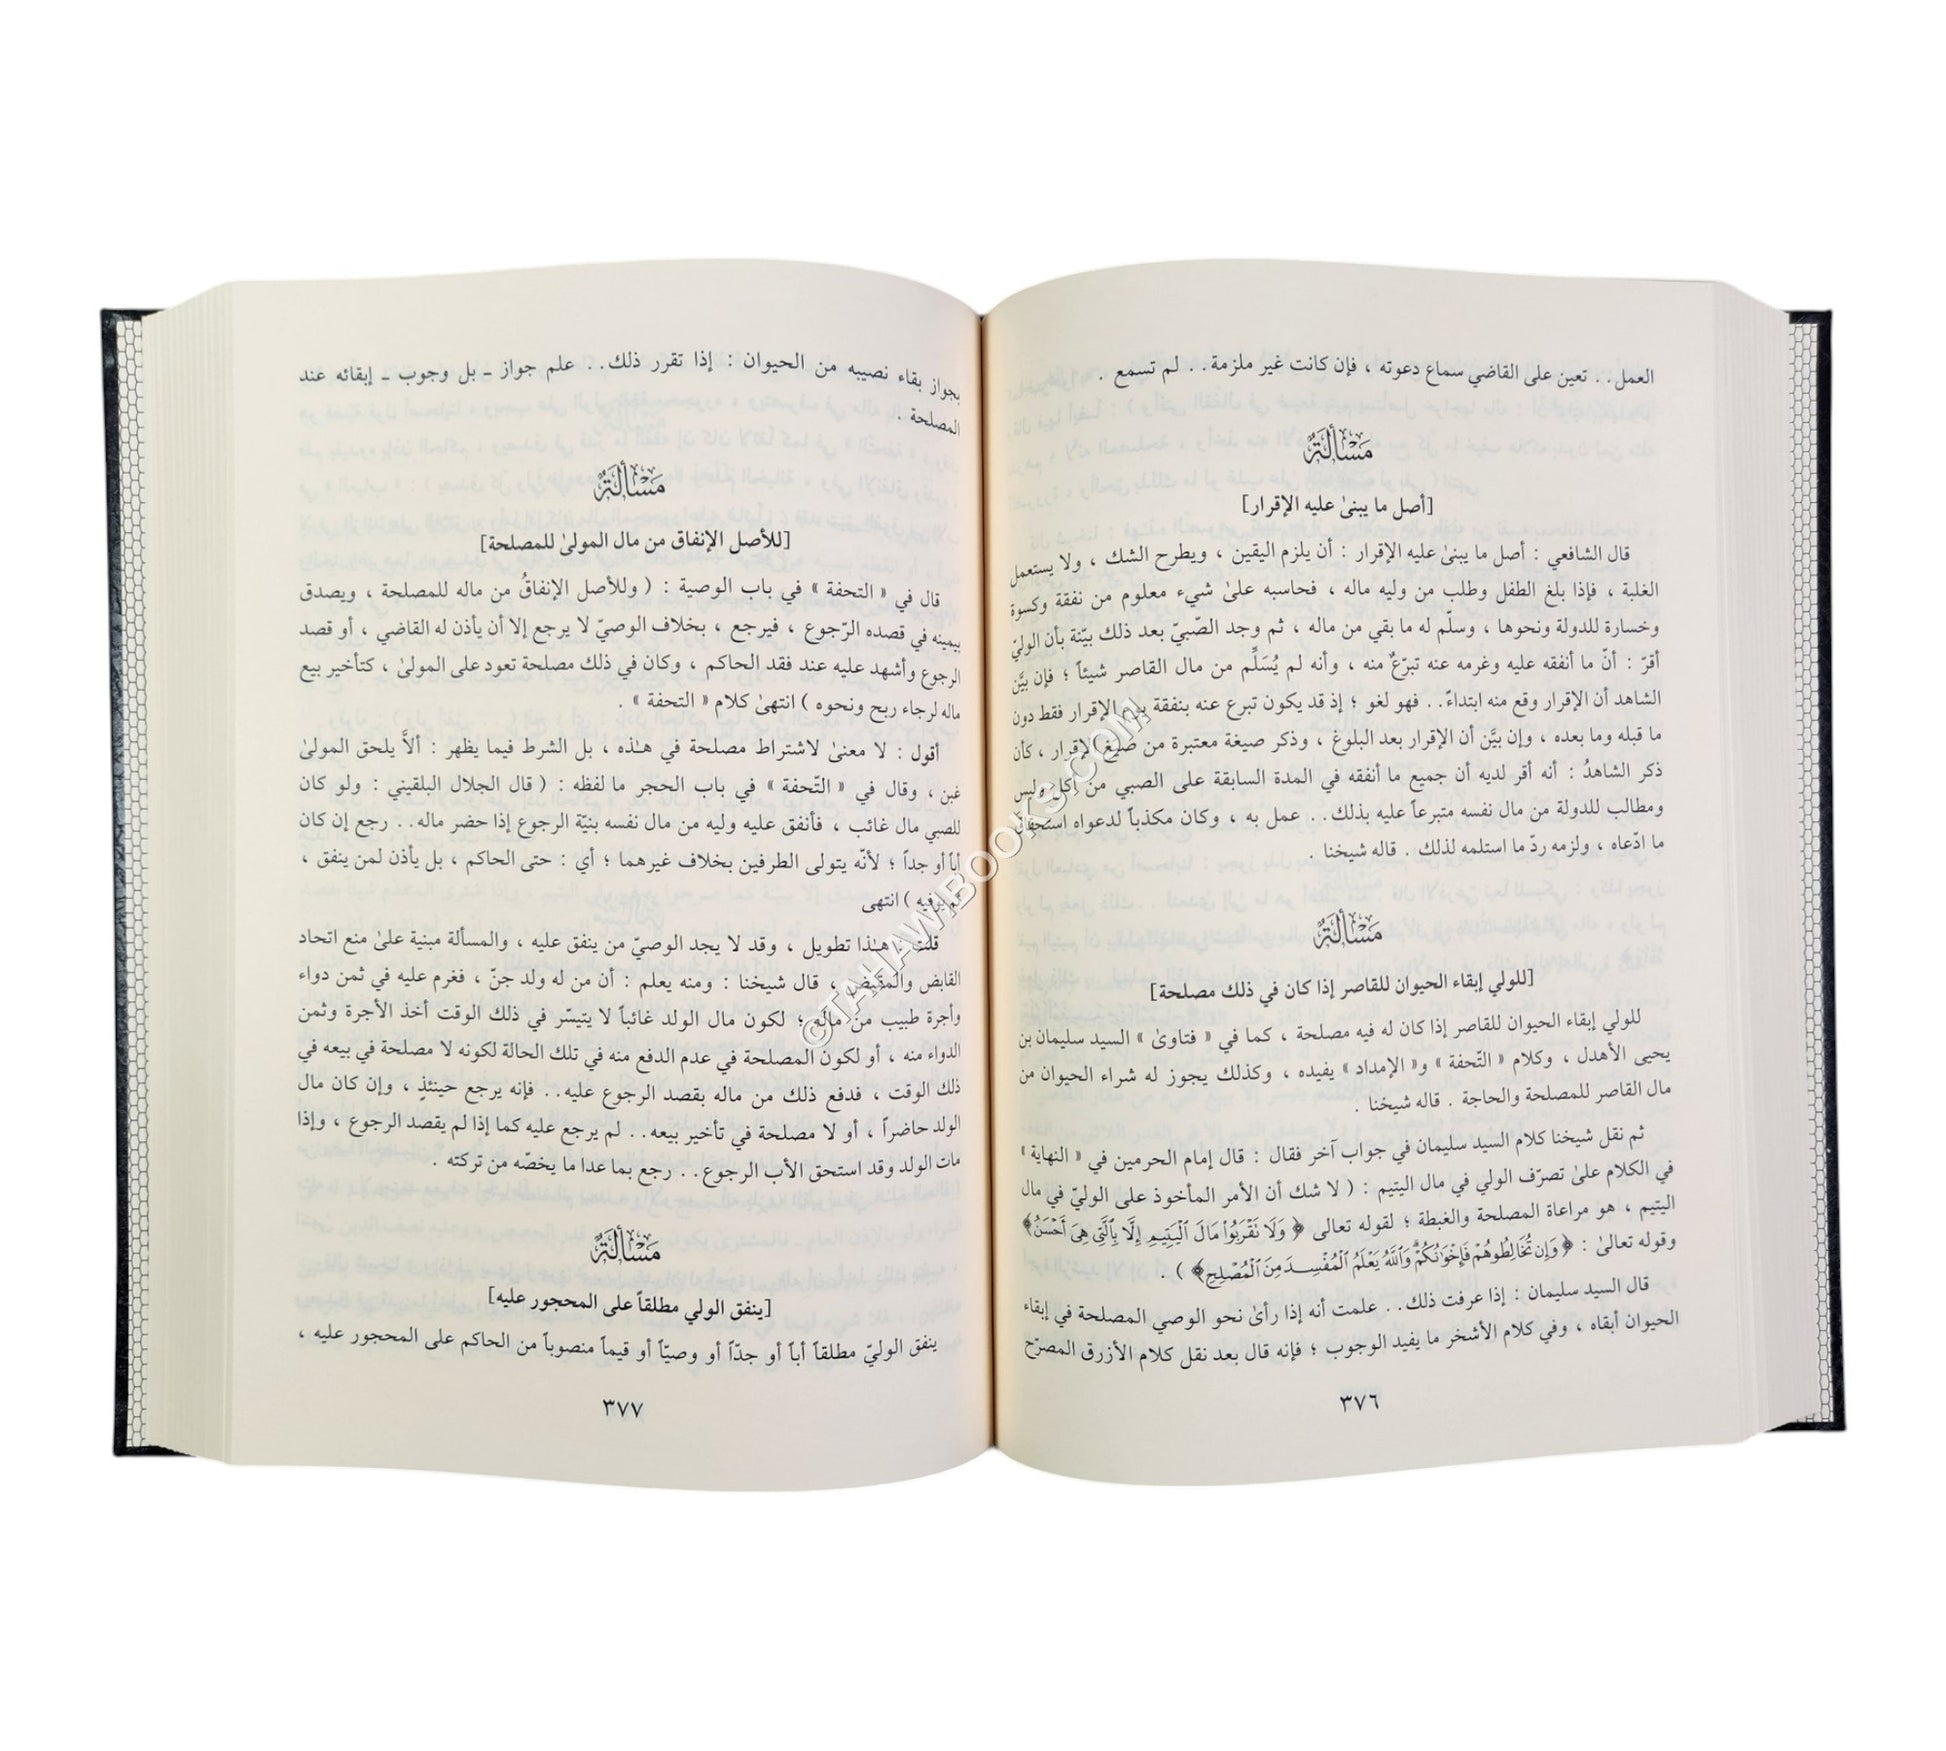 العمل . . تعين على القاضي سماع دعوته ، فإن كانت غير ملزمة . . لم تسمع .
مَسْأَلَةٌ
[أصل ما يبنىٰ عليه الإقرار]
قال الشافعي : أصل ما يبنىٰ عليه الإقرار : أن يلزم اليقين ، ويطرح الشك ، ولا يستعمل
الغلبة ، فإذا بلغ الطفل وطلب من وليه ماله ، فحاسبه علىٰ شيء معلوم من نفقة وكسوة
وخسارة للدولة ونحوها ، وسلّم له ما بقي من ماله ، ثم وجد الصّبيّ بعد ذلك بيّنة بأن الوليّ
أقرّ : أنّ ما أنفقه عليه وغرمه عنه تبرّعٌ منه ، وأنه لم يُسَلِّم من مال القاصر شيئاً ؛ فإن بيَّن
الشاهد أن الإقرار وقع منه ابتداءً . . فهو لغو ؛ إذ قد يكون تبرع عنه بنفقة يوم الإقرار فقط دون
ما قبله وما بعده ، وإن بيَّن أن الإقرار بعد البلوغ ، وذكر صيغة معتبرة من صيغ الإقرار ، كأن
ذكر الشاهدُ : أنه أقر لديه أن جميع ما أنفقه في المدة السابقة على الصبي من أكل ولبس
ومطالب للدولة من مال نفسه متبرعاً عليه بذلك . . عمل به ، وكان مكذباً لدعواه استحقاق
ما ادّعاه ، ولزمه ردّ ما استلمه لذلك . قاله شيخنا .
مَسْأَلَةٌ
[للولي إبقاء الحيوان للقاصر إذا كان في ذلك مصلحة]
للولي إبقاء الحيوان للقاصر إذا كان له فيه مصلحة ، كما في « فتاوىٰ » السيد سليمان بن
يحيى الأهدل ، وكلام « التّحفة » و« الإمداد » يفيده ، وكذلك يجوز له شراء الحيوان من
مال القاصر للمصلحة والحاجة . قاله شيخنا .
ثم نقل شيخنا كلام السيد سليمان في جواب آخر فقال : قال إمام الحرمين في « النهاية »
في الكلام علىٰ تصرّف الولي في مال اليتيم : ( لا شك أن الأمر المأخوذ على الوليّ في مال
اليتيم ، هو مراعاة المصلحة والغبطة ؛ لقوله تعالى ﴿ وَلَا نَقْرَبُوا۟ مَالَ ٱلْيَتِيمِ إِلَّا بِٱلَّتِى هِىَ أَحْسَنُ ﴾
وقوله تعالىٰ : ﴿ وَإِن تُخَالِطُوهُمْ فَإِخْوَٰنُكُمْ وَٱللَّهُ يَعْلَمُ ٱلْمُفْسِدَ مِنَ ٱلْمُصْلِحِ ﴾ ) .
قال السيد سليمان : إذا عرفت ذلك . . علمت أنه إذا رأىٰ نحو الوصي المصلحة في إبقاء
الحيوان أبقاه ، وفي كلام الأشخر ما يفيد الوجوب ؛ فإنه قال بعد نقل كلام الأزرق المصرّح
٣٧٦
بجواز بقاء نصيبه من الحيوان : إذا تقرر ذلك . . علم جواز ـ بل وجوب ـ إبقائه عند
المصلحة .
مَسْأَلَةٌ
[للأصل الإنفاق من مال المولىٰ للمصلحة]
قال في « التحفة » في باب الوصية : ( وللأصل الإنفاقُ من ماله للمصلحة ، ويصدق
بيمينه في قصده الرّجوع ، فيرجع ، بخلاف الوصيّ لا يرجع إلا أن يأذن له القاضي ، أو قصد
الرجوع وأشهد عليه عند فقد الحاكم ، وكان في ذلك مصلحة تعود على المولىٰ ، كتأخير بيع
ماله لرجاء ربح ونحوه ) انتهىٰ كلام « التحفة » .
أقول : لا معنىٰ لاشتراط مصلحة في هـٰذه ، بل الشرط فيما يظهر : ألاَّ يلحق المولىٰ
غبن ، وقال في « التّحفة » في باب الحجر ما لفظه : ( قال الجلال البلقيني : ولو كان
للصبي مال غائب ، فأنفق عليه وليه من مال نفسه بنيّة الرجوع إذا حضر ماله . . رجع إن كان
أباً أو جداً ؛ لأنّه يتولى الطرفين بخلاف غيرهما ؛ أي : حتى الحاكم ، بل يأذن لمن ينفق ،
ثم يوفيه ) انتهى
قلت : هـٰذا تطويل ، وقد لا يجد الوصيّ من ينفق عليه ، والمسألة مبنية علىٰ منع اتحاد
القابض والمقبض ، قال شيخنا : ومنه يعلم : أن من له ولد جنّ ، فغرم عليه في ثمن دواء
وأجرة طبيب من ماله ؛ لكون مال الولد غائباً لا يتيسّر في ذلك الوقت أخذ الأجرة وثمن
الدواء منه ، أو لكون المصلحة في عدم الدفع منه في تلك الحالة لكونه لا مصلحة في بيعه في
ذلك الوقت ، فدفع ذلك من ماله بقصد الرجوع عليه . . فإنه يرجع حينئذٍ ، وإن كان مال
الولد حاضراً ، أو لا مصلحة في تأخير بيعه . . لم يرجع عليه كما إذا لم يقصد الرجوع ، وإذا
مات الولد وقد استحق الأب الرجوع . . رجع بما عدا ما يخصّه من تركته .
مَسْأَلَةٌ
[ينفق الولي مطلقاً على المحجور عليه]
ينفق الوليّ مطلقاً أباً أو جدّاً أو وصيّاً أو قيماً منصوباً من الحاكم على المحجور عليه ،
٣٧٧
©TAHAWIBOOKS.COM